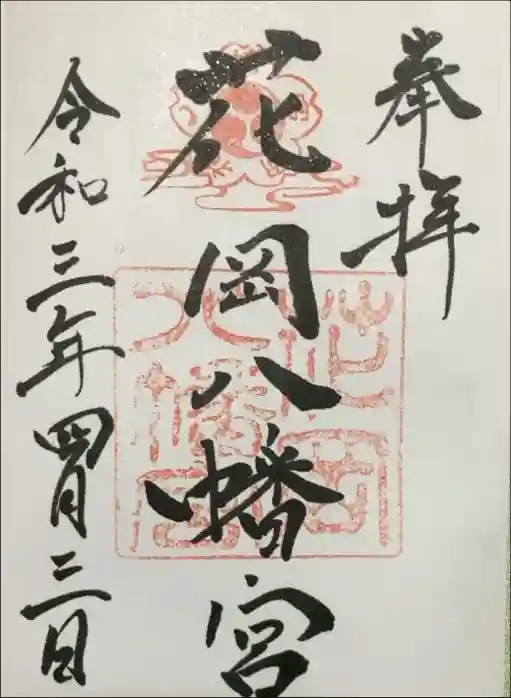 奉拝
花岡八幡宮
花岡八幡宮
令和三年四月三日